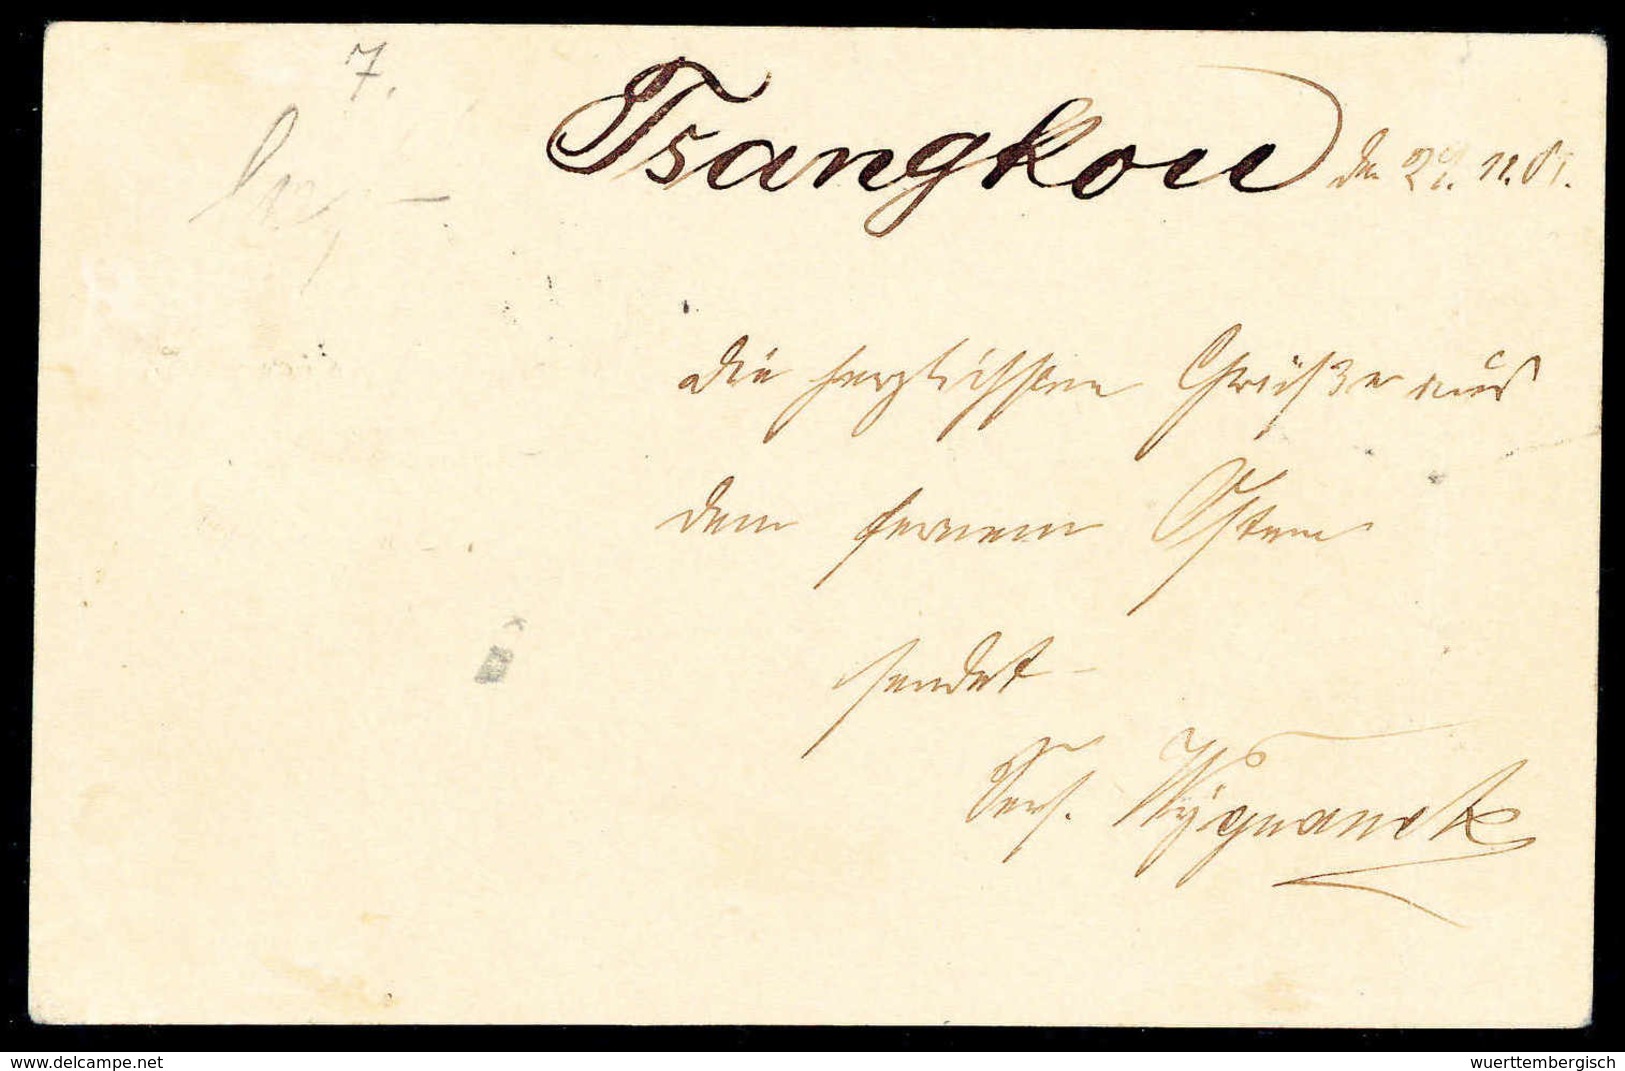 7.
Tsangkou den 29. 11. 01.
die herzlichsten Grüße aus
dem fernem Osten
sendet
Serg. Wygnanek
delcampe.net
wuerttembergisch